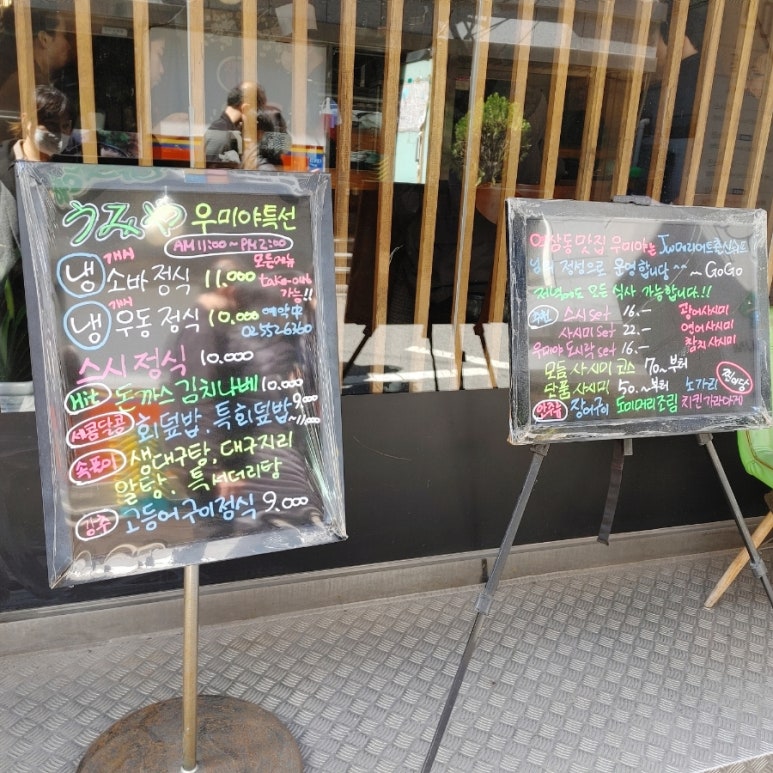 うみや 우미야특선
AM 11:00 ~ PM 2:00
냉 개시 소바 정식 11.000
모든메뉴 take-out 가능!!
냉 개시 우동 정식 10.000
예약中 02 552 6360
스시 정식 10.000
Hit 돈까스 김치나베 10.000
새콤달콤 회덮밥. 특회덮밥 9.000 ~11.000
속풀이 생대구탕, 대구지리
알탕. 특서더리탕
강추 고등어구이정식 9.000
역삼동 맛집 우미야는
정성으로 운영합니다^^ ~ GoGo
저녁에도 모든 식사 가능합니다.!!
스시 set 16.- 광어사시미
사시미 set 22.- 연어사시미
우미야 도시락 set 16.- 참치 사시미
모듬 사시미 코스 70~부터
단품 사시미 50.~부터 노가리
안주류 장어구이 도미머리조림 치킨가라아게